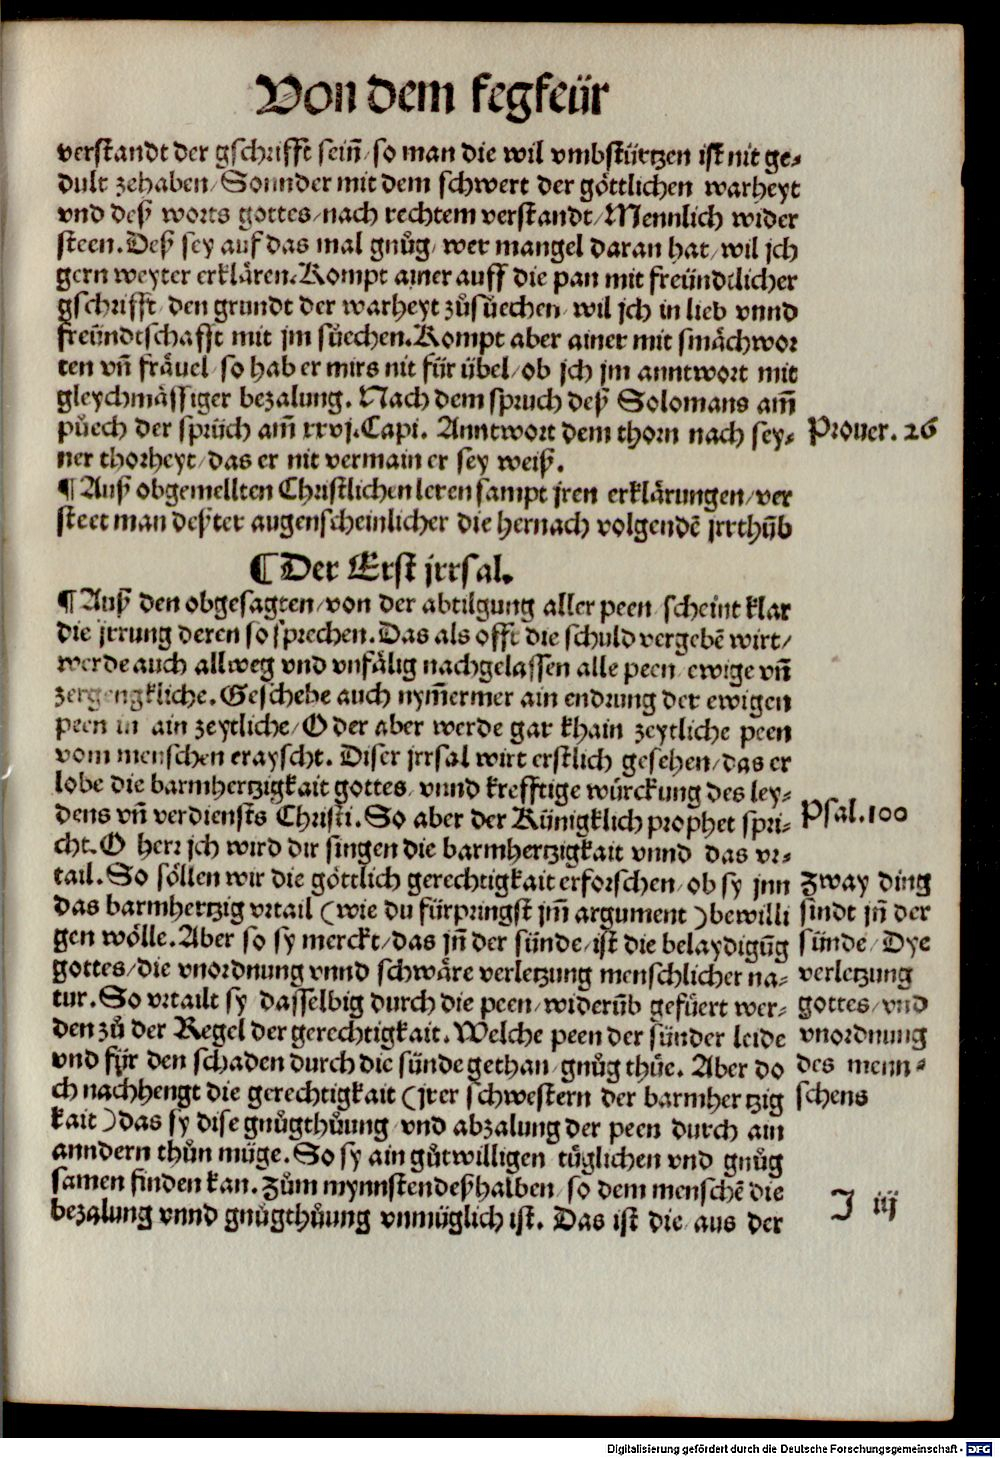 Von dem fegfeür
verstandt der gschrifft sein̄ / so man die wil vmbstürtzen ist nit ge⸗
dult zehaben / Sonnder mit dem schwert der göttlichen warheyt
vnd deß worts gottes / nach rechtem verstandt / Mennlich wider
steen. Deß sey auf das mal gnůg / wer mangel daran hat / wil jch
gern weyter erklären. Kompt ainer auff die pan mit freündtlicher
gschrifft / den grundt der warheyt zůsüechen / wil jch in lieb vnnd
freündtschafft mit jm süechen. Kompt aber ainer mit smächwor
ten vn̄ fräuel / so hab er mirs nit für übel / ob jch jm anntwort mit
gleychmässiger bezalung. Nach dem spruch deß Solomans am̄
půech der sprüch am̄ xxvj. Capi. Anntwort dem thorn nach sey⸗
Prouer. 26
ner thorheyt / das er nit vermain er sey weiß.
¶ Auß obgemellten Christlichen leren sampt jren erklärungen / ver
steet man deßter augenscheinlicher die hernach volgendē jrrthūb
¶ Der Erst jrrsal.
¶ Auß den obgesagten / von der abtilgung aller peen / scheint klar
die jrrung deren so sprechen. Das als offt die schuld vergebē wirt /
werde auch allweg vnd vnfälig nachgelassen alle peen / ewige vn̄
zergengkliche. Geschehe auch nym̄ermer ain endrung der ewigen
peen in ain zeytliche / Oder aber werde gar khain zeytliche peen
vom menschen erayscht. Diser jrrsal wirt erstlich gesehen / das er
lobe die barmhertzigkait gottes / vnnd krefftige würckung des ley⸗
dens vn̄ verdiensts Christi. So aber der Künigklich prophet spri⸗
Psal. 100
cht. O herr jch wird dir singen die barmhertzigkait vnnd das vr⸗
tail. So söllen wir die göttlich gerechtigkait erforschen / ob sy jnn
das barmhertzig vrtail (wie du fürpringst jm̄ argument) bewilli
gen wölle. Aber so sy merckt / das jn̄ der sünde / ist die belaydigūg
gottes / die vnordnung vnnd schwäre verletzung menschlicher na⸗
tur. So vrtailt sy dasselbig durch die peen / widerūb gefüert wer⸗
den zů der Regel der gerechtigkait. Welche peen der sünder leide
vnd für den schaden durch die sünde gethan / gnůg thüe. Aber do
ch nachhengt die gerechtigkait (jrer schwestern der barmhertzig
kait) das sy dise gnůgthůung vnd abzalung der peen durch ain
anndern thůn müge. So sy ain gůtwilligen tüglichen vnd gnůg
samen finden kan. Zům mynnsten deßhalben / so dem menschē die
bezalung vnnd gnůgthůung vnmüglich ist. Das ist die / aus der
Zway ding
sindt jn̄ der
sünde / Dye
verletzung
gottes / vnd
vnordnung
des menn⸗
schens
J iij
Digitalisierung gefördert durch die Deutsche Forschungsgemeinschaft - DFG